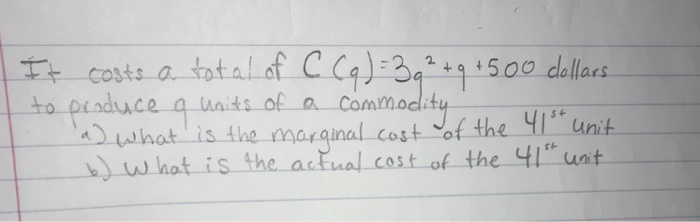 It costs a total of C(q)=3q²+q+500 dollars
to produce q units of a commodity
a) what is the marginal cost of the 41st unit
b) What is the actual cost of the 41st unit